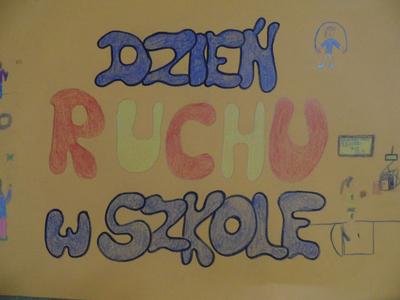 DZIEŃ
RUCHU
W SZKOLE